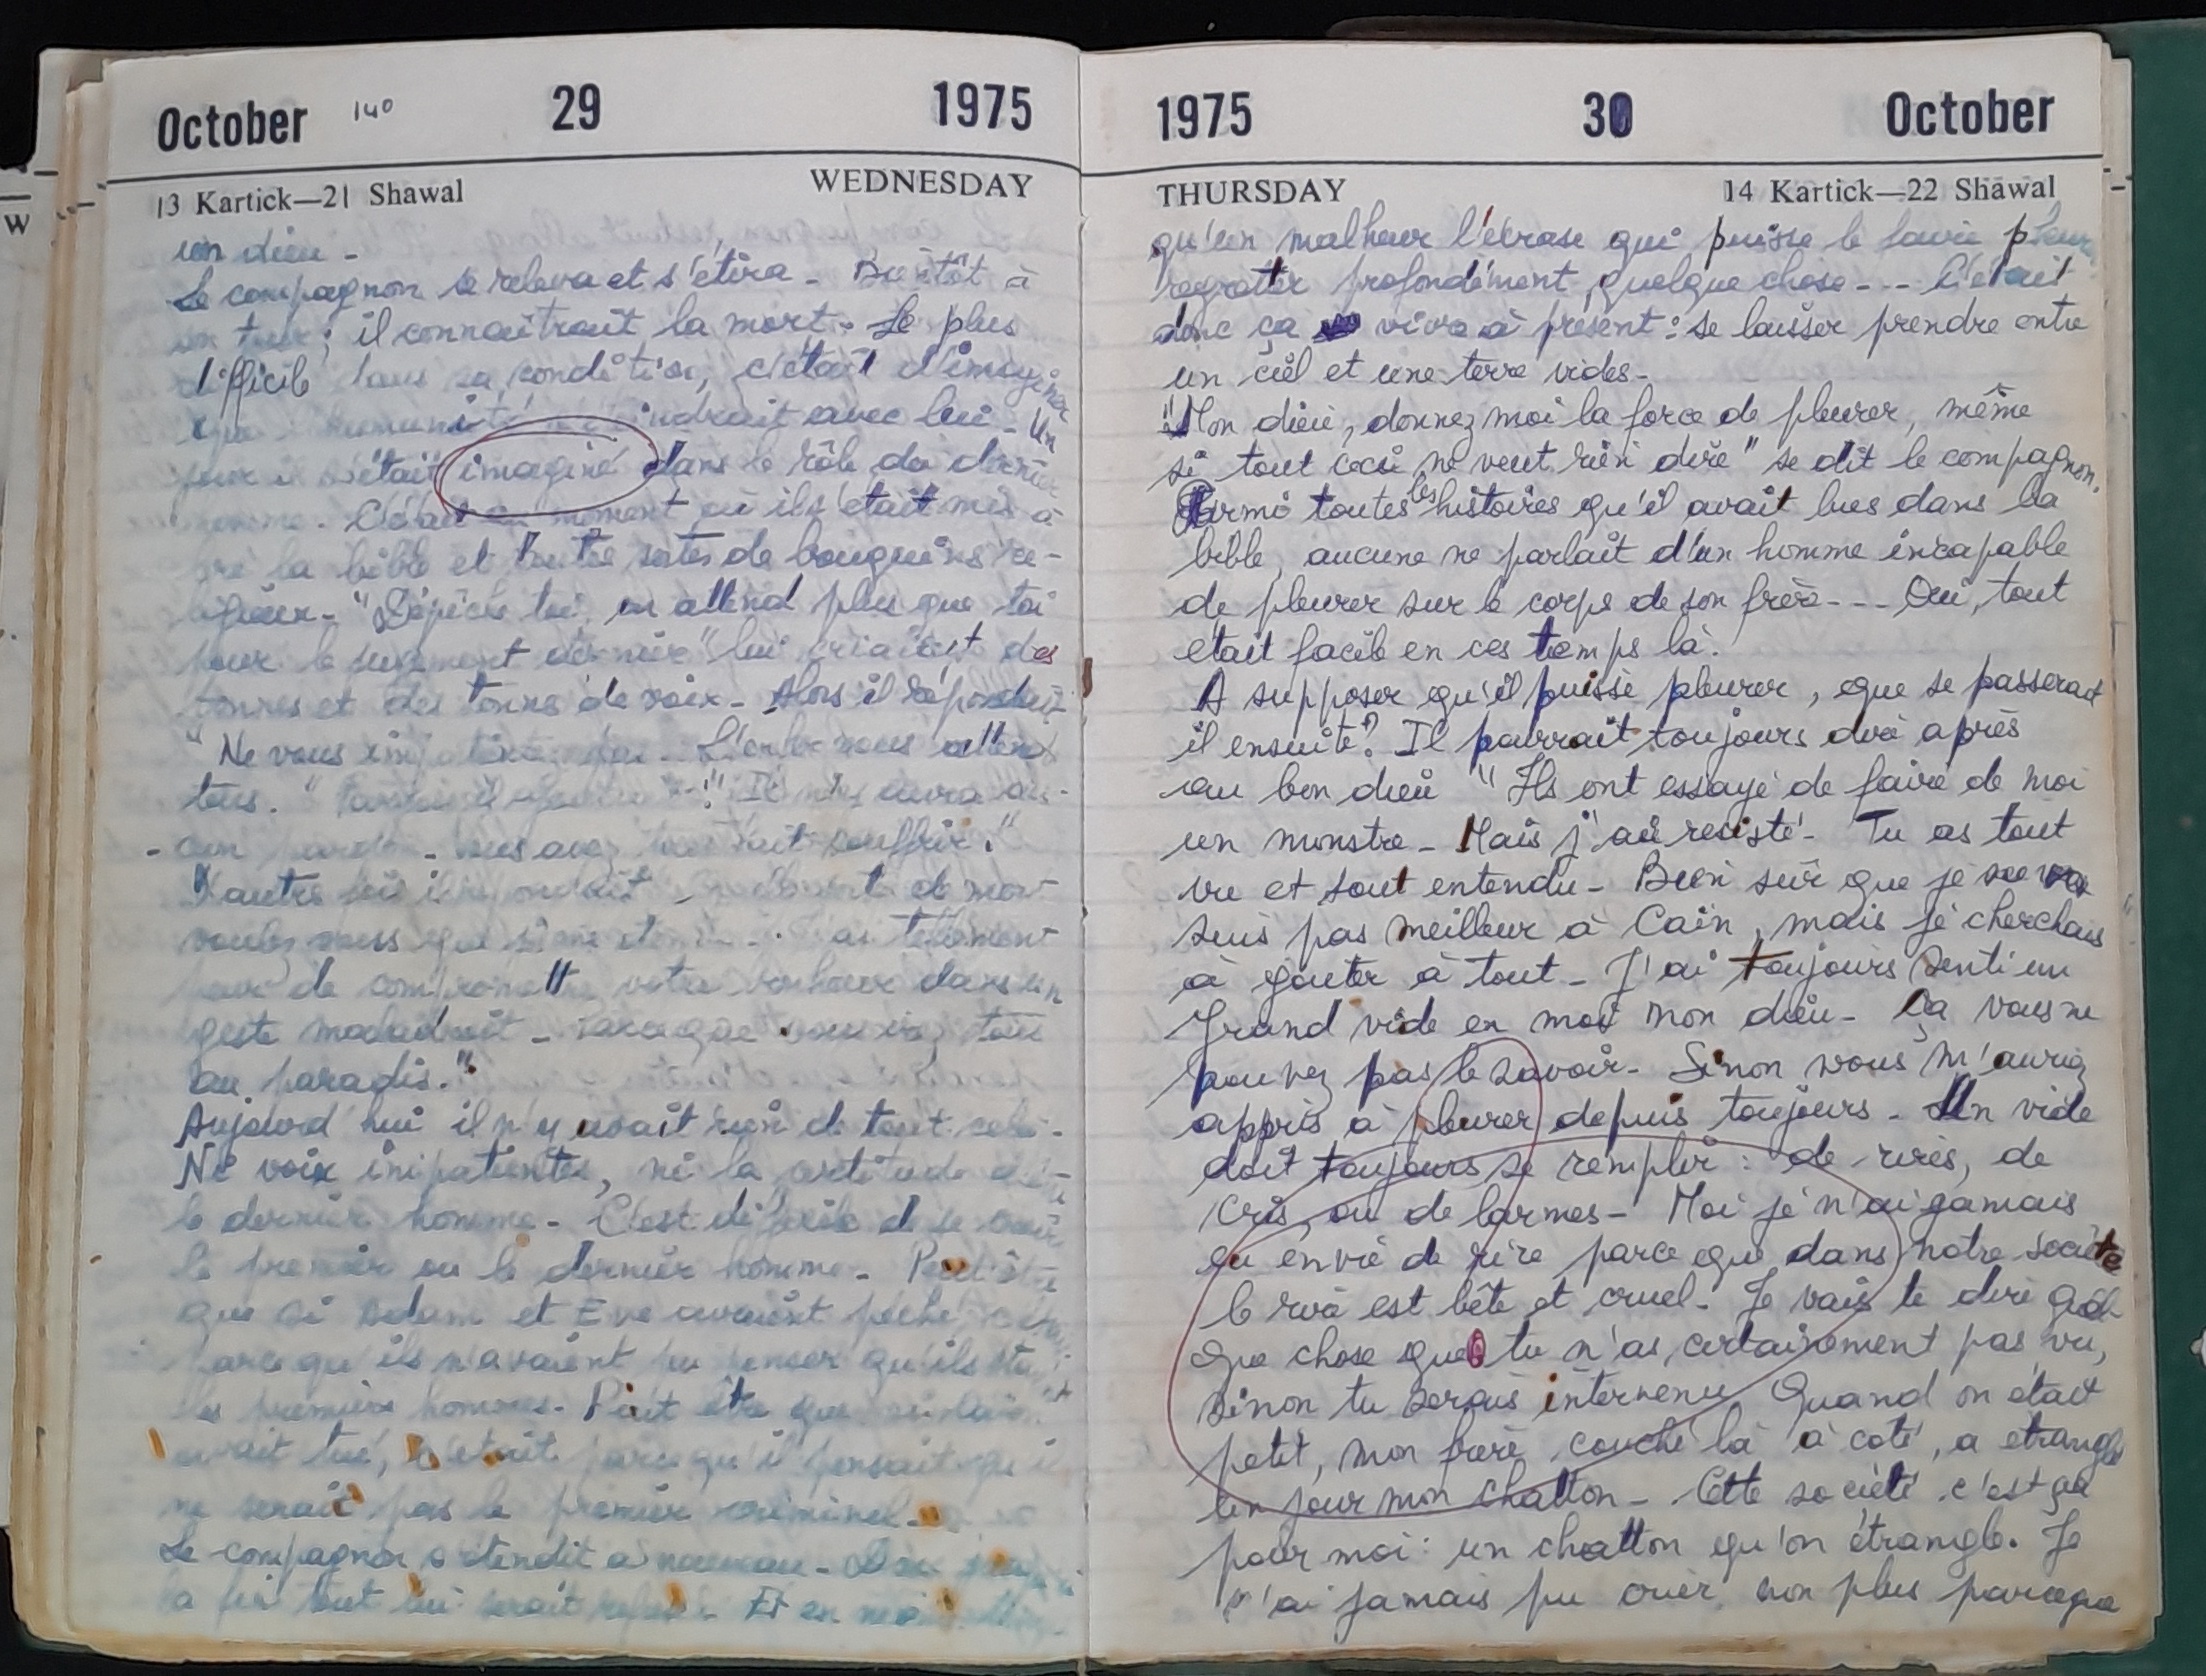 October 140 29 1975
13 Kartick—21 Shawal WEDNESDAY
un dieu -
Le compagnon se releva et s'étira - Bientôt à
son tour ; il connaitrait la mort. Le plus
difficile dans sa condition, c'était d'imaginer
que l'humanité avec lui - Un
jour il s'était imaginé dans le rôle du dernier
homme. C'était au moment où il s'était mis à
lire la bible et toutes sortes de bouquins re-
ligieux. "Dépêche toi, on attend plus que toi
pour le jugement dernier" lui criaient des
tonnes et des tonnes de voix - Alors il répondait
"Ne vous impatientez pas - L'enfer vous attend
tous. " Il n'y aura au-
cun pardon - vous avez fait souffrir."
D'autres fois il répondait
voulez vous que tellement
peur de compromettre votre bonheur dans un
geste maladroit - Parceque vous irez tous
au paradis."
Aujourd'hui il n'y avait rien de tout cela -
Ni voix impatientes, ni la certitude
le dernier homme - C'est difficile de se
le premier ou le dernier homme - Peut être
que si Adam et Eve avaient péché c'est
parce qu'ils n'avaient pu penser qu'ils
les premiers hommes - Peut être que si Caïn
avait tué, c'était parce qu'il pensait qu'il
ne serait pas le premier criminel -
Le compagnon s'étendit à nouveau -
la fin tout lui serait refusé - Et en
1975 30 October
THURSDAY 14 Kartick—22 Shawal
qu'un malheur l'écrase qui puisse le faire pleurer
regretter profondément quelque chose - - - C'était
donc ça vivre à présent : se laisser prendre entre
un ciel et une terre vides -
"Mon dieu, donnez moi la force de pleurer, même
si tout ceci ne veut rien dire" se dit le compagnon.
Parmi toutes les histoires qu'il avait lues dans la
bible, aucune ne parlait d'un homme incapable
de pleurer sur le corps de son frère - - - Oui, tout
etait facile en ces temps là.
A supposer qu'il puisse pleurer, que se passerait
il ensuite ? Il pourrait toujours dire après
au bon dieu "Ils ont essayé de faire de moi
un monstre - Mais j'ai resisté - Tu as tout
vu et tout entendu - Bien sûr que je ne
suis pas meilleur à Caïn, mais je cherchais
à gouter à tout - J'ai toujours senti un
grand vide en moi mon dieu - Ça vous ne
pouvez pas le savoir - Sinon vous m'auriez
appris à pleurer depuis toujours - Un vide
doit toujours se remplir : de rires, de
cris, ou de larmes - Moi je n'ai jamais
eu envie de rire parce que dans notre société
le rire est bête et cruel. Je vais te dire quel
que chose que tu n'as certainement pas vu,
sinon tu serais intervenu Quand on était
petit, mon frère couché là à coté, a etranglé
un jour mon chatton - Cette société c'est ça
pour moi : un chatton qu'on étrangle. Je
n'ai jamais pu crier non plus parceque